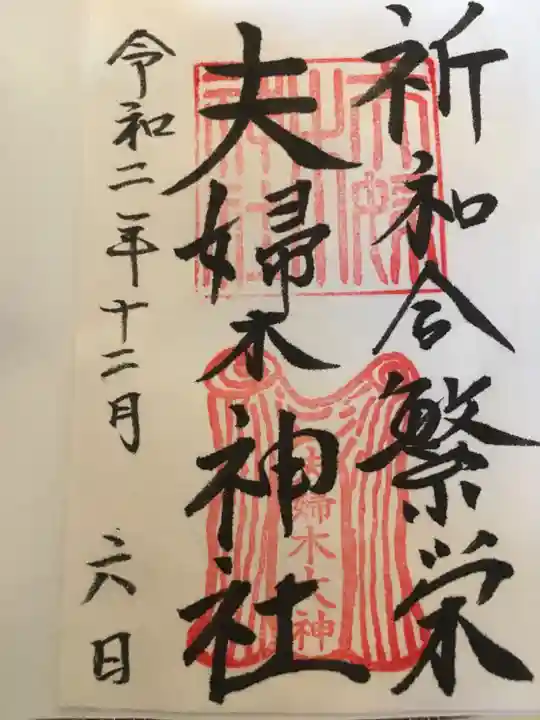 祈和合繁栄
夫婦木神社
夫婦木大神
令和二年十二月 六日